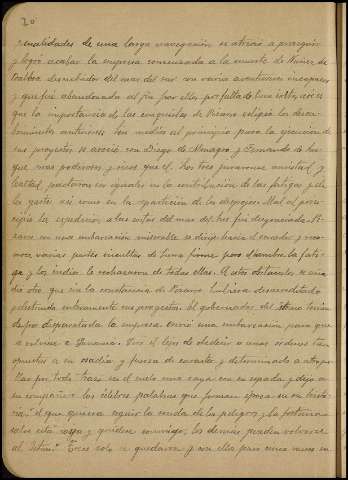 20
penalidades de una larga navegación se atrevió a proseguir
y logró acabar la empresa comenzada a la muerte de Núñez de
Balboa descubridor del mar del sur con varios aventureros incapaces
y que fué abandonada al fin por ellos por falta de buen éxito, a
que la importancia de las conquistas de Pizarro eclipsó los descu-
brimientos anteriores. Sin medios al principio para la ejecución de
sus proyectos, se asoció con Diego de Almagro y Fernando de Lu-
que mas poderosos y ricos que él. Los tres juraronse amistad y
lealtad, pactaron en iguales en la contribución de las fatigas y de
los gastos así como en la repartición de los despojos. Mal al prin-
cipio la expedición a las costas del mar del sur fué desgraciada. Pi-
zarro en una embarcación miserable se dirige hacia el ecuador y reco-
noce varias partes incultas de tierra firme pero el hambre la fati-
ga y los indios le rechazaron de todas ellas. A otros obstáculos se aña-
dió otro que sin la constancia de Pizarro hubiera desacreditado
y destruido enteramente sus proyectos. El gobernador del istmo tenien-
do por disparatada la empresa envió una embarcación para que
se volviese a Panamá. Pero él lejos de obedecer a unas órdenes tan
opuestas a su osadía y fuerza de caracter y determinado a atrope-
llar por todo traza en el suelo una raya con su espada y dejó a
sus compañeros las célebres palabras que forman época en su histo-
ria: "el que quiera seguir la senda de los peligros y la fortuna
salte esta raya y quédese conmigo; los demás pueden volverse
al Istmo". Trece solo se quedaron y con ellos pasó cinco meses en